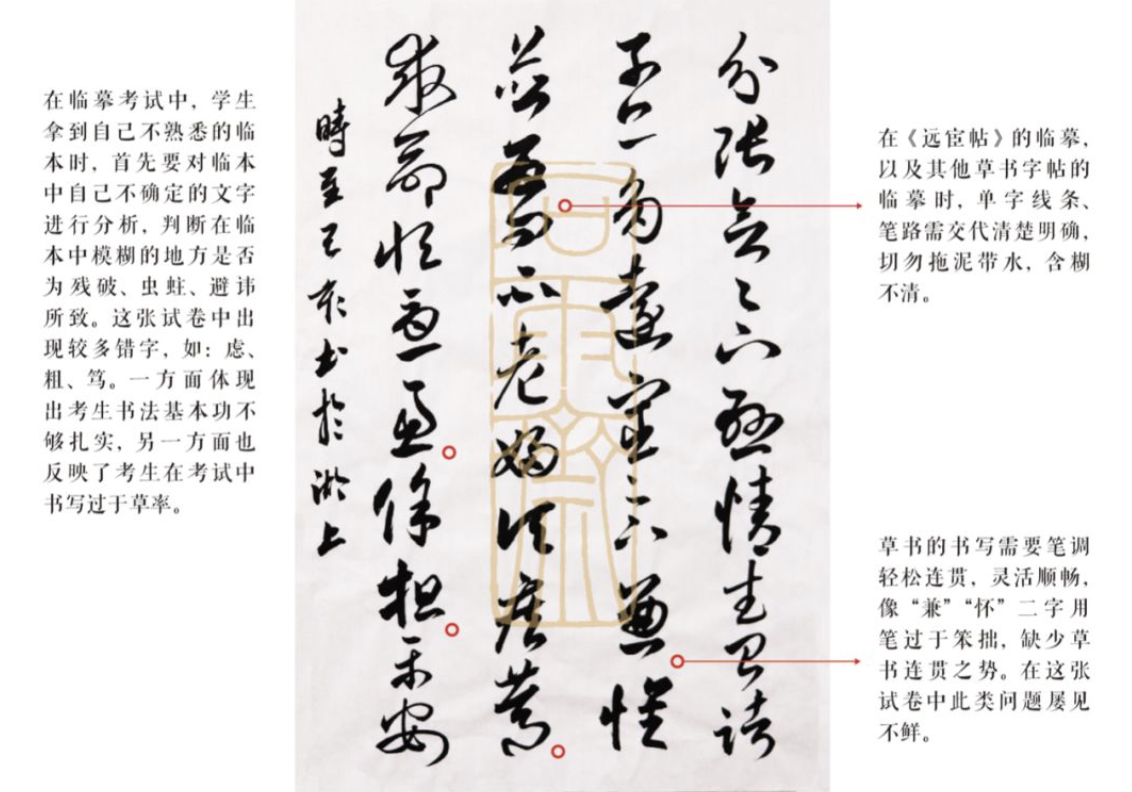 在临摹考试中，学生
拿到自己不熟悉的临
本时，首先要对临本
中自己不确定的文字
进行分析，判断在临
本中模糊的地方是否
为残破、虫蛀、避讳
所致。这张试卷中出
现较多错字，如：虑、
粗、笃。一方面体现
出考生书法基本功不
够扎实，另一方面也
反映了考生在考试中
书写过于草率。
分張念足下懸情武昌諸
子亦多遠宦足下兼懷
並數問不老婦頃疾篤
救命恒憂慮餘粗平安
時至己亥書於上
在《远宦帖》的临摹，
以及其他草书字帖的
临摹时，单字线条、
笔路需交代清楚明确，
切勿拖泥带水，含糊
不清。
草书的书写需要笔调
轻松连贯，灵活顺畅，
像“兼”“怀”二字用
笔过于笨拙，缺少草
书连贯之势。在这张
试卷中此类问题屡见
不鲜。